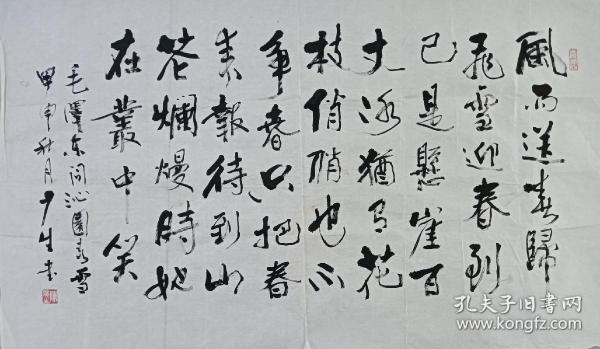 風雨送春歸
飛雪迎春到
已是懸崖百
丈冰猶有花
枝俏俏也不
争春只把春
来報待到山
花爛熳時她
在叢中笑
毛澤东词沁園春雪
甲申秋月 生书
孔夫子旧书网
www.kongfz.com